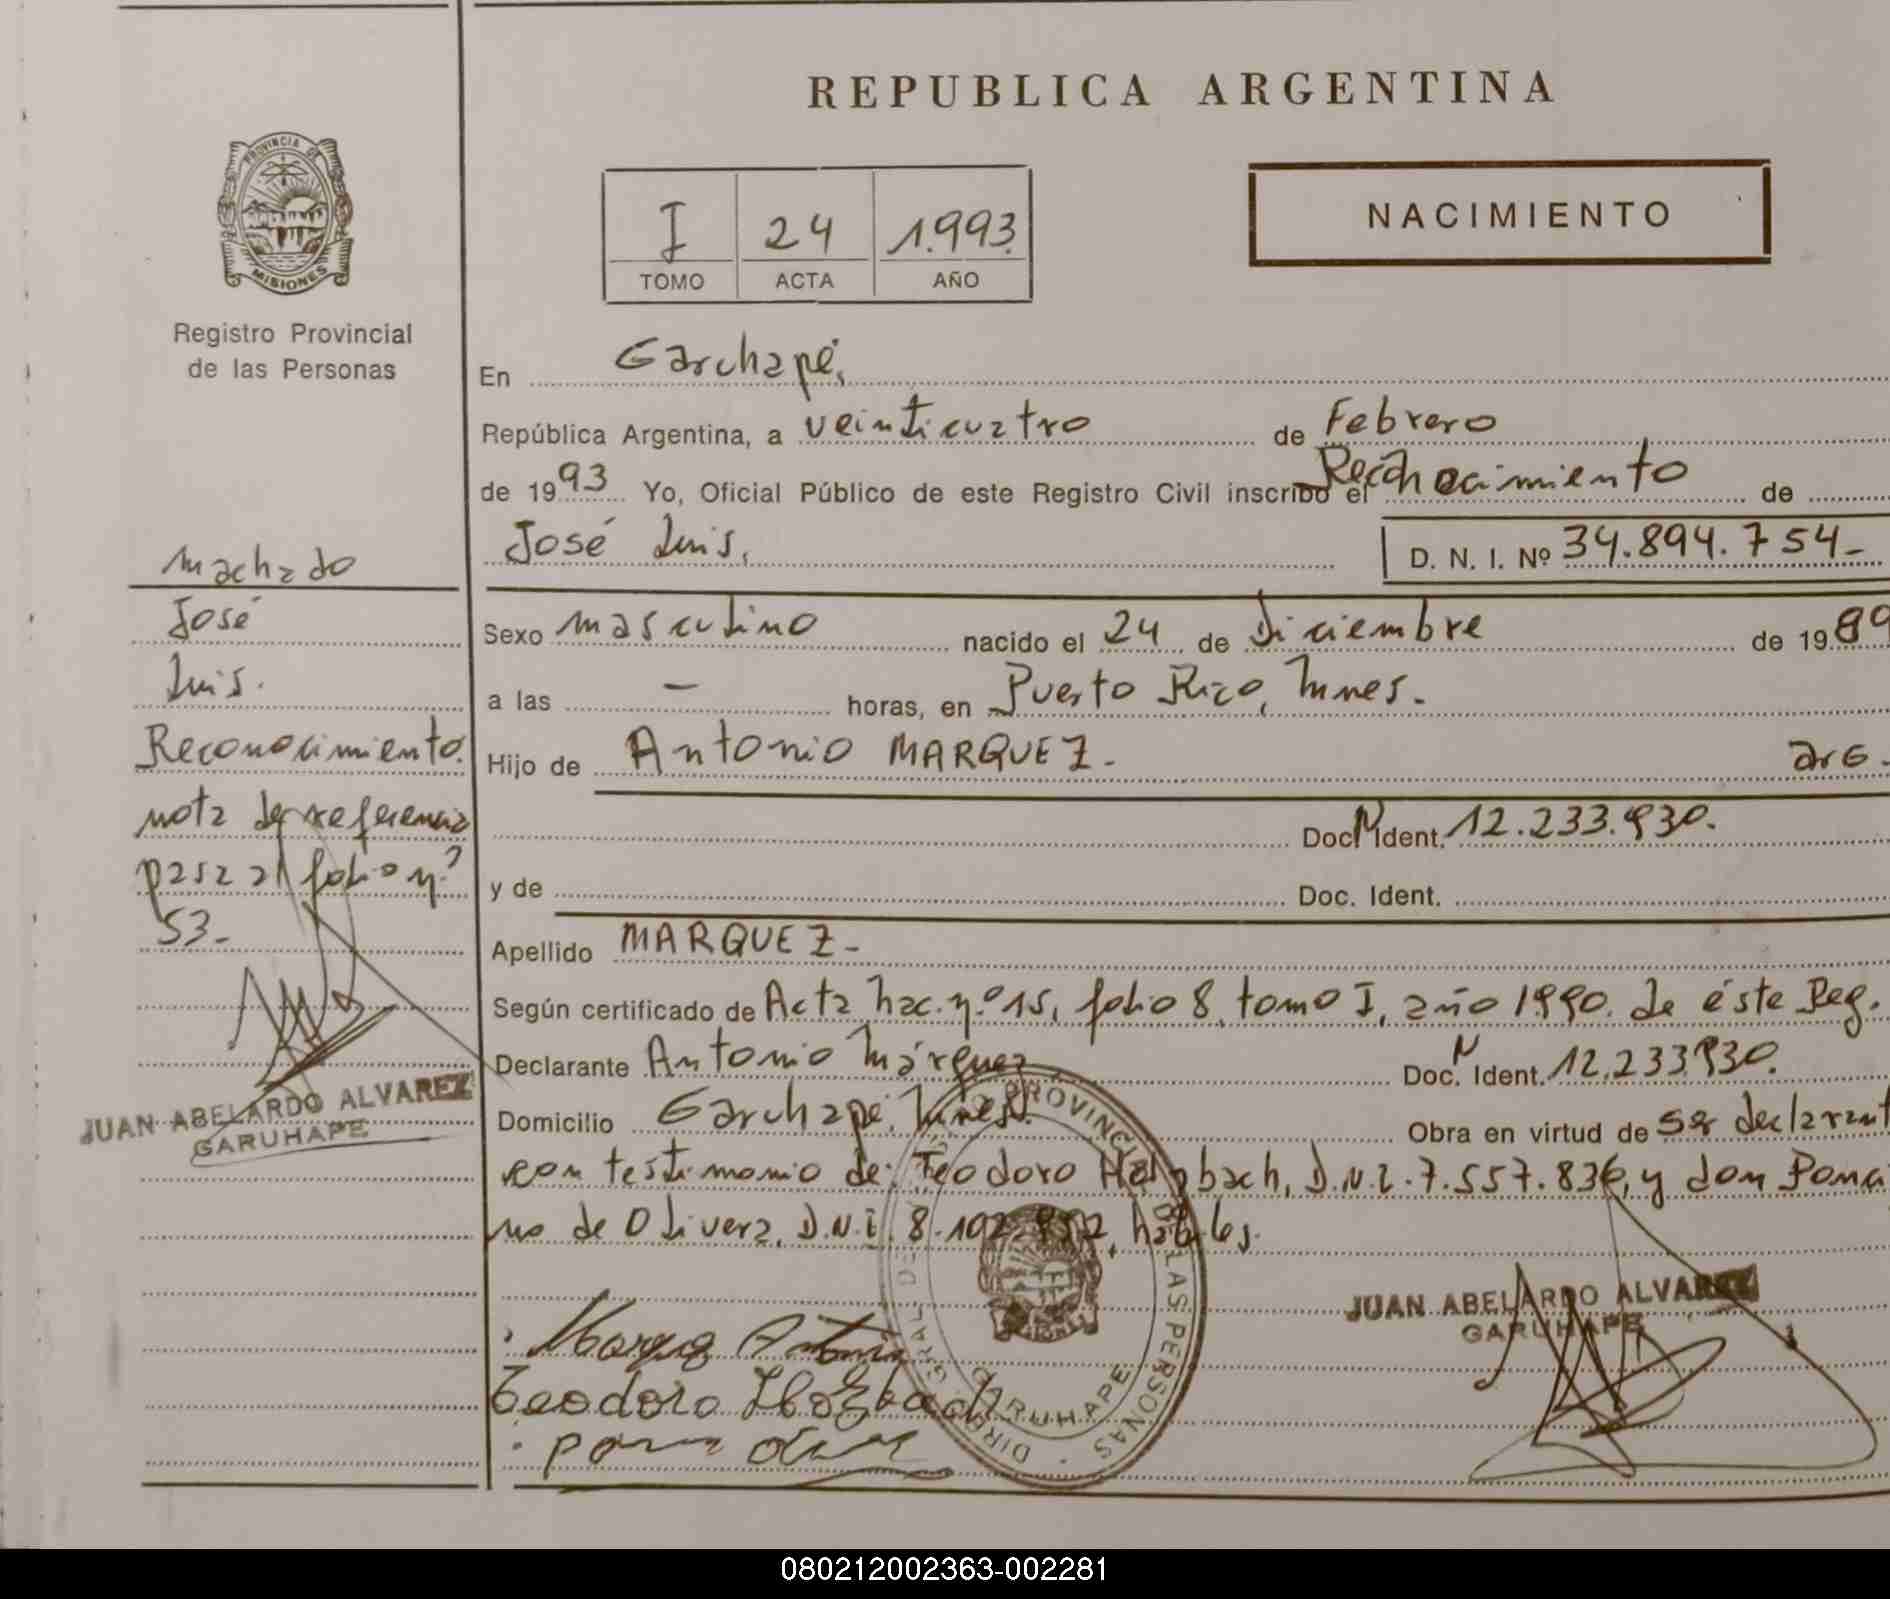 REPUBLICA ARGENTINA
PROVINCIA DE
MISIONES
Registro Provincial
de las Personas
I 24 1.993.
TOMO ACTA AÑO
NACIMIENTO
En Garuhapé,
República Argentina, a veinticuatro de Febrero
de 1993 Yo, Oficial Público de este Registro Civil inscribo el Reconocimiento de
José Luis, D. N. I. Nº 34.894.754-
machado
José
Luis.
Reconocimiento.
nota de referencia
pasa al folio nº
53-
JUAN ABELARDO ALVAREZ
GARUHAPE
Sexo masculino nacido el 24 de Diciembre de 1989
a las - horas, en Puerto Rico, Mnes.
Hijo de Antonio MARQUEZ- arg-
Doc. Ident. 12.233.930.
y de Doc. Ident.
Apellido MARQUEZ-
Según certificado de Acta nac. nº 15, folio 8, tomo I, año 1990. de éste Reg.
Declarante Antonio Márquez Doc. Ident. 12.233.930.
Domicilio Garuhapé, Mnes. Obra en virtud de ser declarant
con testimonio de: Teodoro Holzbach, D.N.I. 7.557.836, y don Roma
no de Olivera, D.N.I. 8.102. hábiles.
Marquez Antonio
Teodoro Holzbach
JUAN ABELARDO ALVAREZ
GARUHAPE
DIREC. GRAL. DE PROVINCIAL DE LAS PERSONAS
GARUHAPE
MISIONES
080212002363-002281